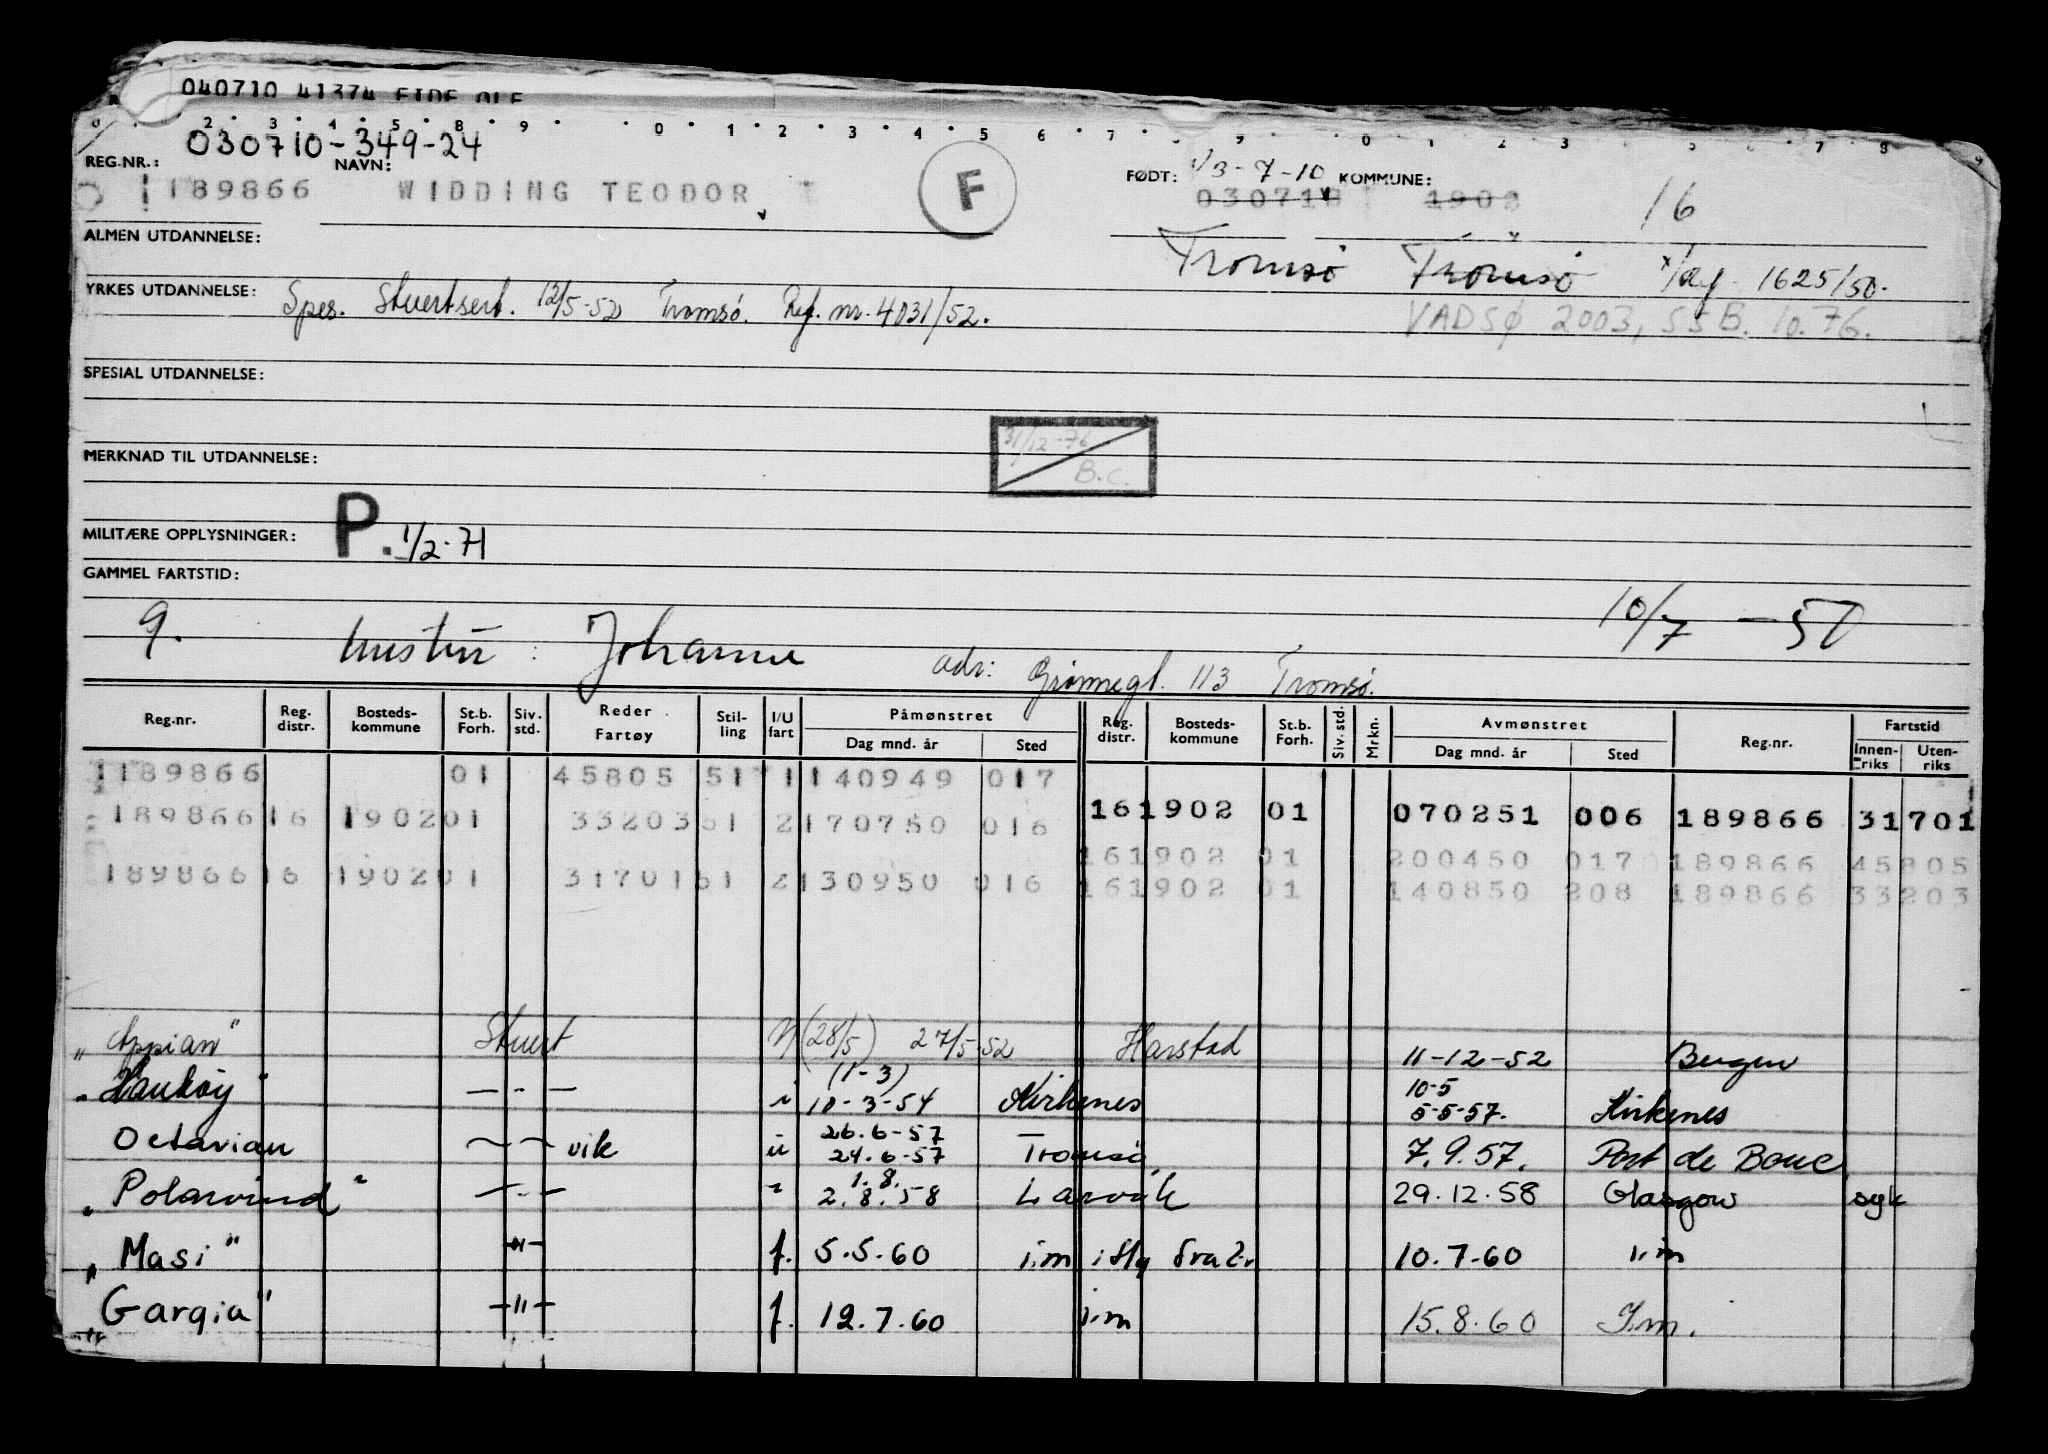 040710 41374 EIDE OLE
030710-349-24
REG.NR.: NAVN: FØDT: 3-7-10 KOMMUNE:
189866 WIDDING TEODOR F 030710 1902 16
ALMEN UTDANNELSE: Tromsø Tromsø 1625/50.
YRKES UTDANNELSE: Spes. Stuertsert. 12/5-52 Tromsø. Ref. nr. 4031/52.
VADSØ 2003, SSB. 10.76.
SPESIAL UTDANNELSE:
31/12-76
MERKNAD TIL UTDANNELSE: B.C.
MILITÆRE OPPLYSNINGER: P. 1/2-71
GAMMEL FARTSTID:
9. hustru: Johanne adr: Grønnegt. 113 Tromsø. 10/7-50
Reg.nr. Reg. distr. Bosteds-kommune St.b. Forh. Siv. std. Reder Fartøy Stil-ling I/U fart Påmønstret Dag mnd. år Sted Reg. distr. Bosteds-kommune St.b. Forh. Siv. std. Mrkn. Avmønstret Dag mnd. år Sted Reg.nr. Fartstid Innen-riks Uten-riks
1189866 01 45805 51 1 140949 017
189866 16 1902 01 33203 51 2 170750 016 16 1902 01 070251 006 189866 31701
16 1902 01 200450 017 189866 45805
189866 16 1902 01 31701 51 2 130950 016 16 1902 01 140850 208 189866 33203
"Appian" Stuert (28/5) 27/5-52 Harstad 11-12-52 Bergen
(1-3) 10-5
-"- i 10-3-54 Kirkenes 5-5-57. Kirkenes
26.6-57
Octavian -"- vik u 24.6-57 Tromsø 7.9.57. Port de Bouc
1.8.
"Polarvind" -"- " 2.8.58 Larvik 29.12.58 Glasgow syk
"Masi" -"- f. 5.5.60 i.m. 10.7.60 i.m
"Gargia" -"- f. 12.7.60 i.m 15.8.60 I.m.